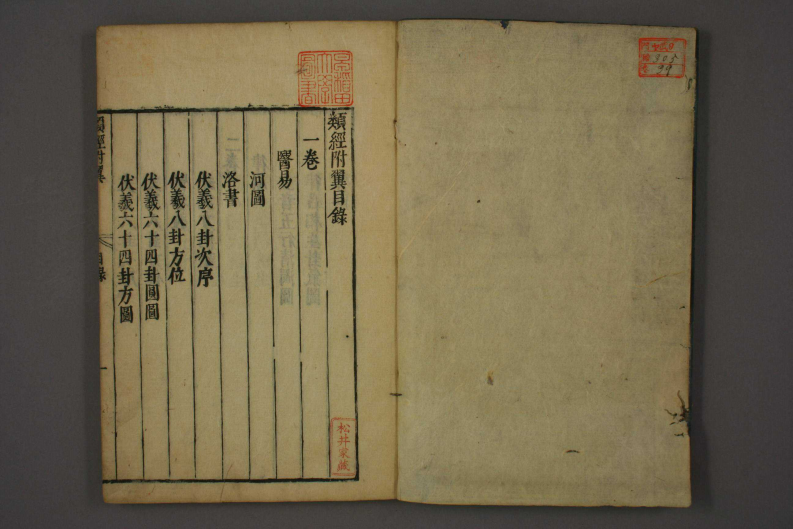 類經附翼目錄
一卷
醫易
河圖
洛書
伏羲八卦次序
伏羲八卦方位
伏羲六十四卦圓圖
伏羲六十四卦方圖
類經附翼
目錄
一
松井家藏
305
99